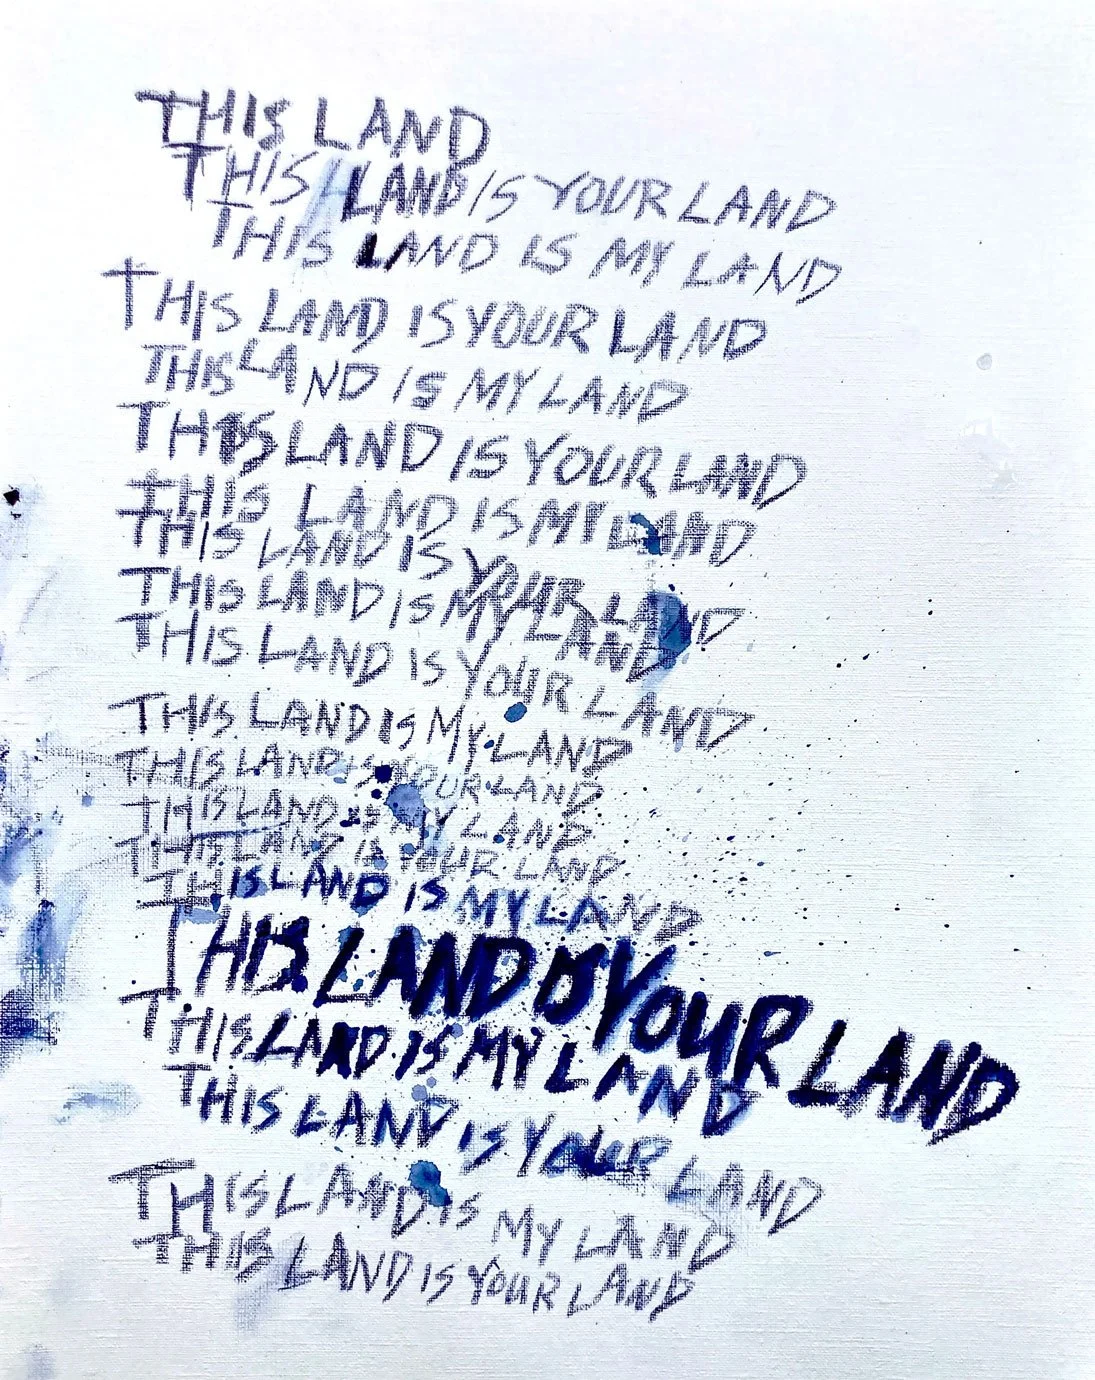 THIS LAND
THIS LAND IS YOUR LAND
THIS LAND IS MY LAND
THIS LAND IS YOUR LAND
THIS LAND IS MY LAND
THIS LAND IS YOUR LAND
THIS LAND IS MY LAND
THIS LAND IS YOUR LAND
THIS LAND IS MY LAND
THIS LAND IS YOUR LAND
THIS LAND IS MY LAND
THIS LAND IS YOUR LAND
THIS LAND IS MY LAND
THIS LAND IS YOUR LAND
THIS LAND IS MY LAND
THIS LAND IS YOUR LAND
THIS LAND IS MY LAND
THIS LAND IS YOUR LAND
THIS LAND IS MY LAND
THIS LAND IS YOUR LAND